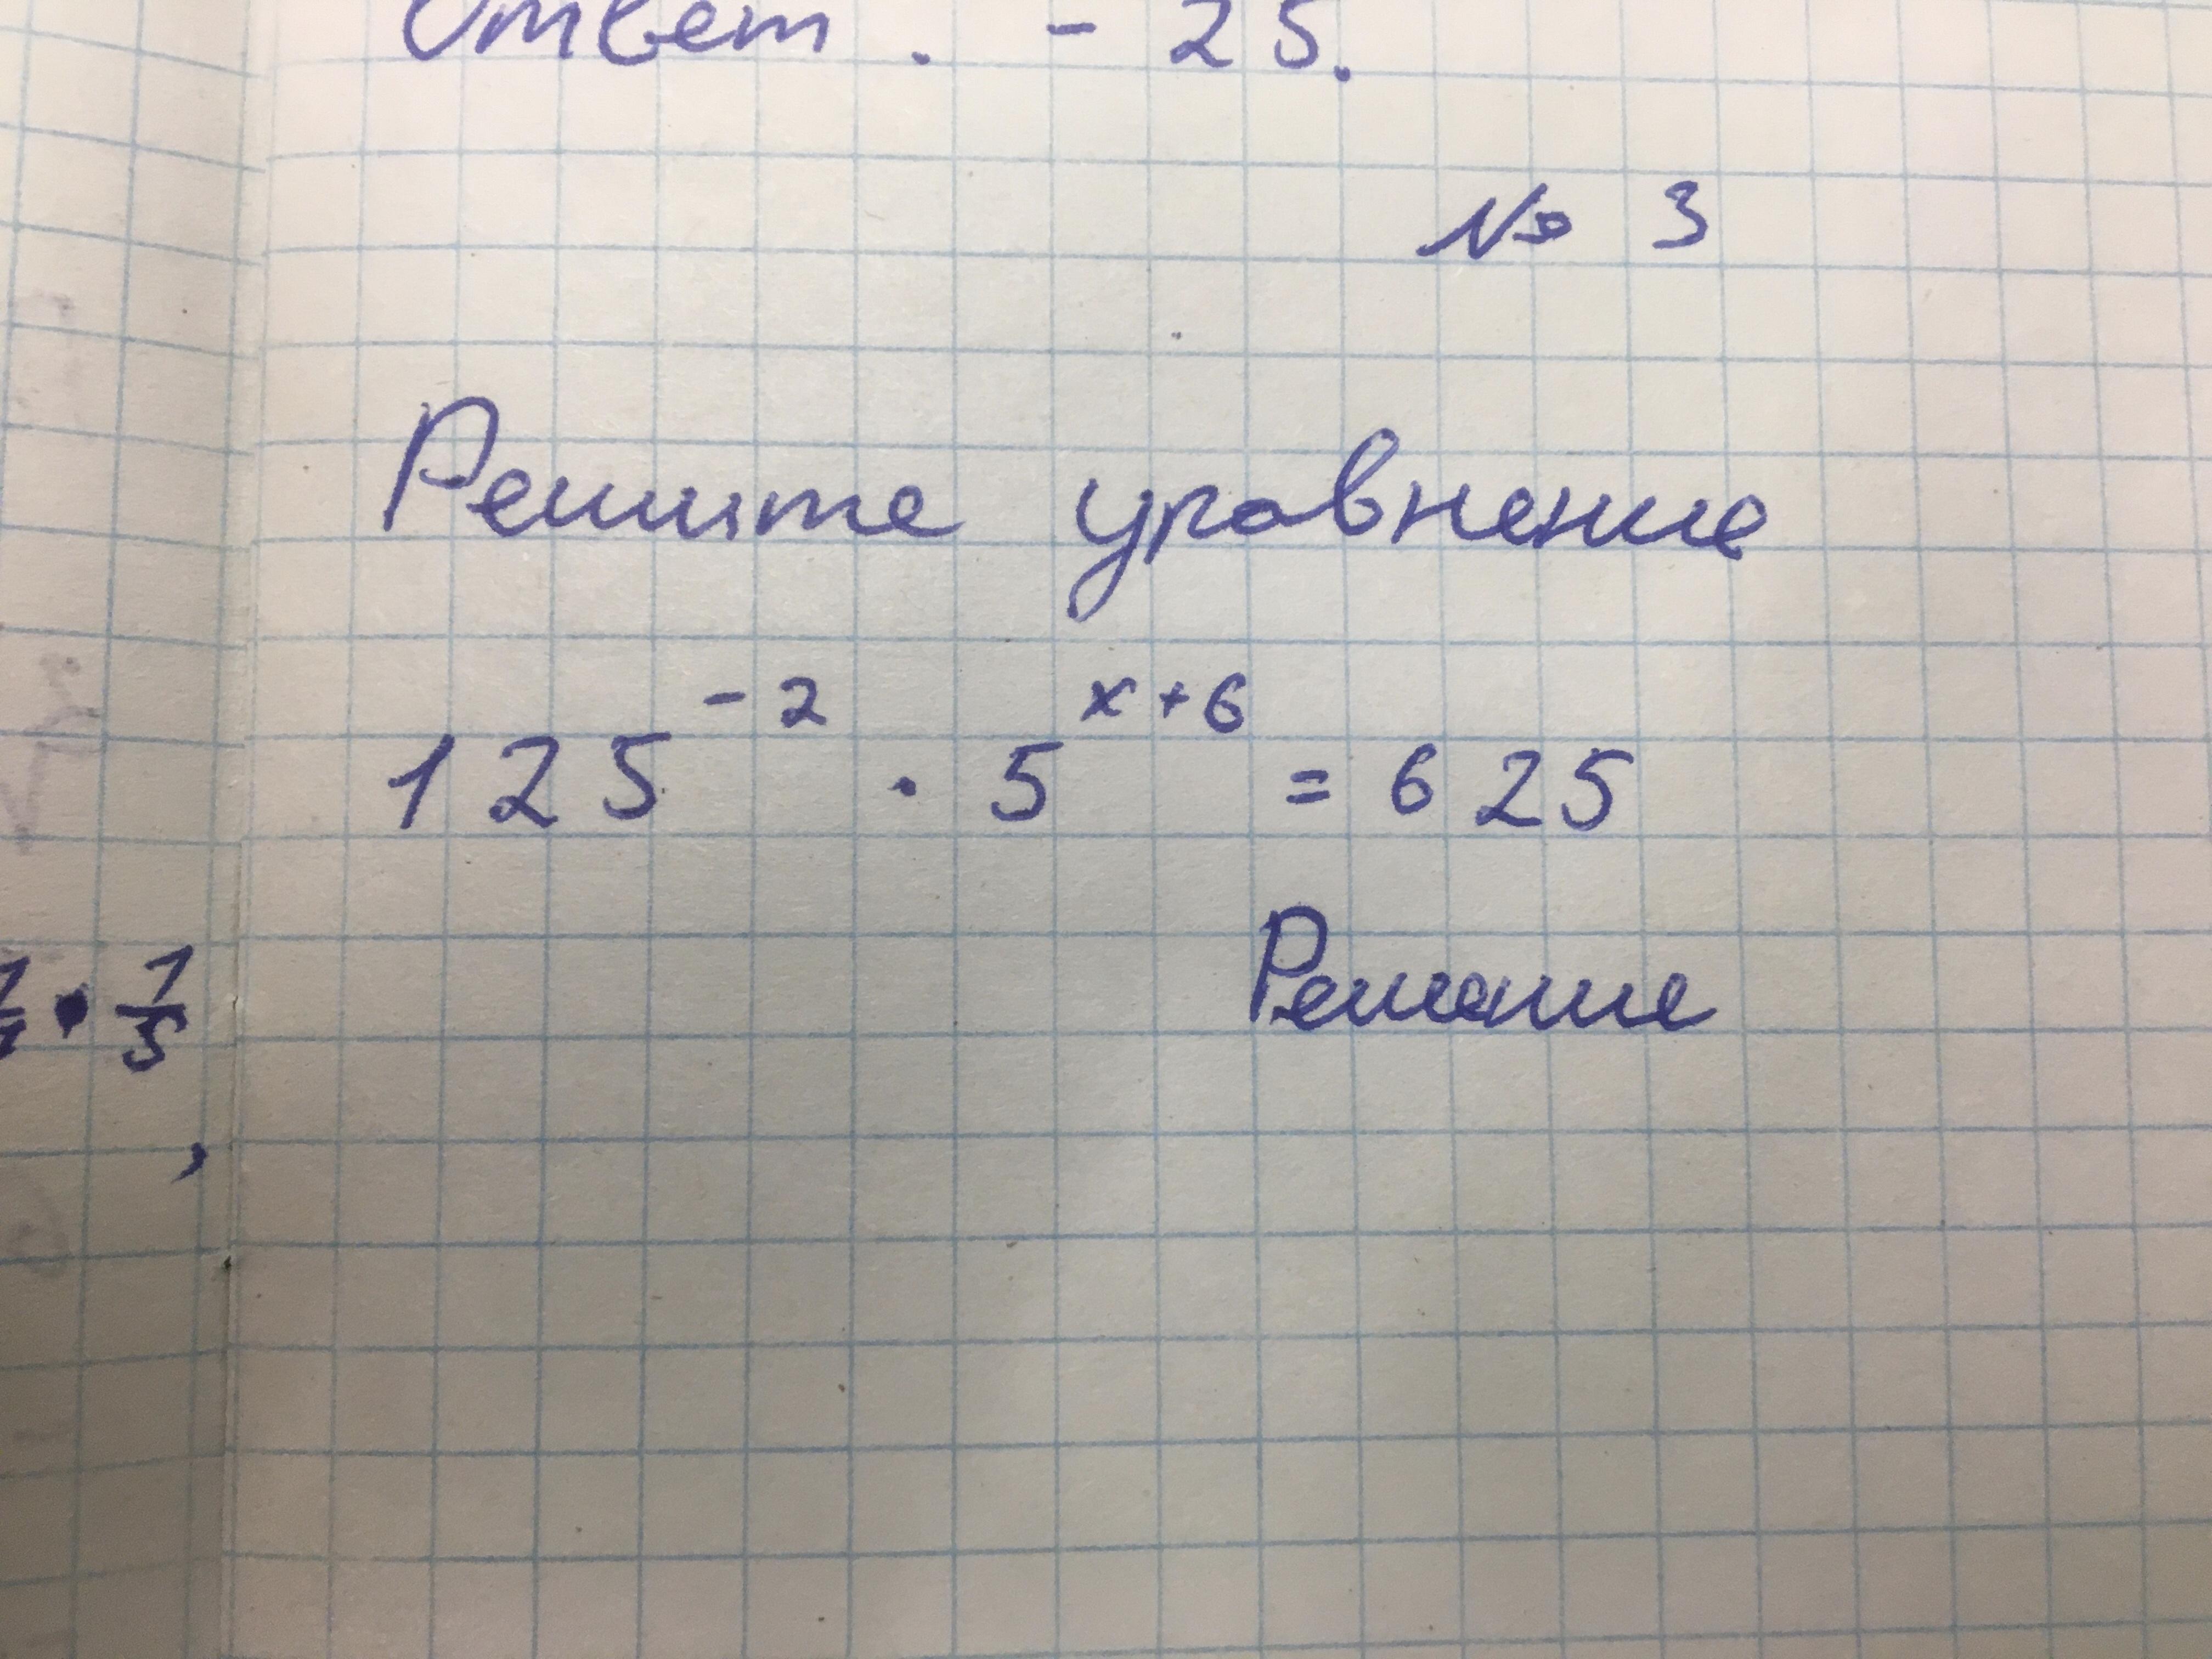 Ответ. - 25.
№ 3
Решите уравнение
125^{-2} · 5^{x+6} = 625
Решение
· 1/5
,